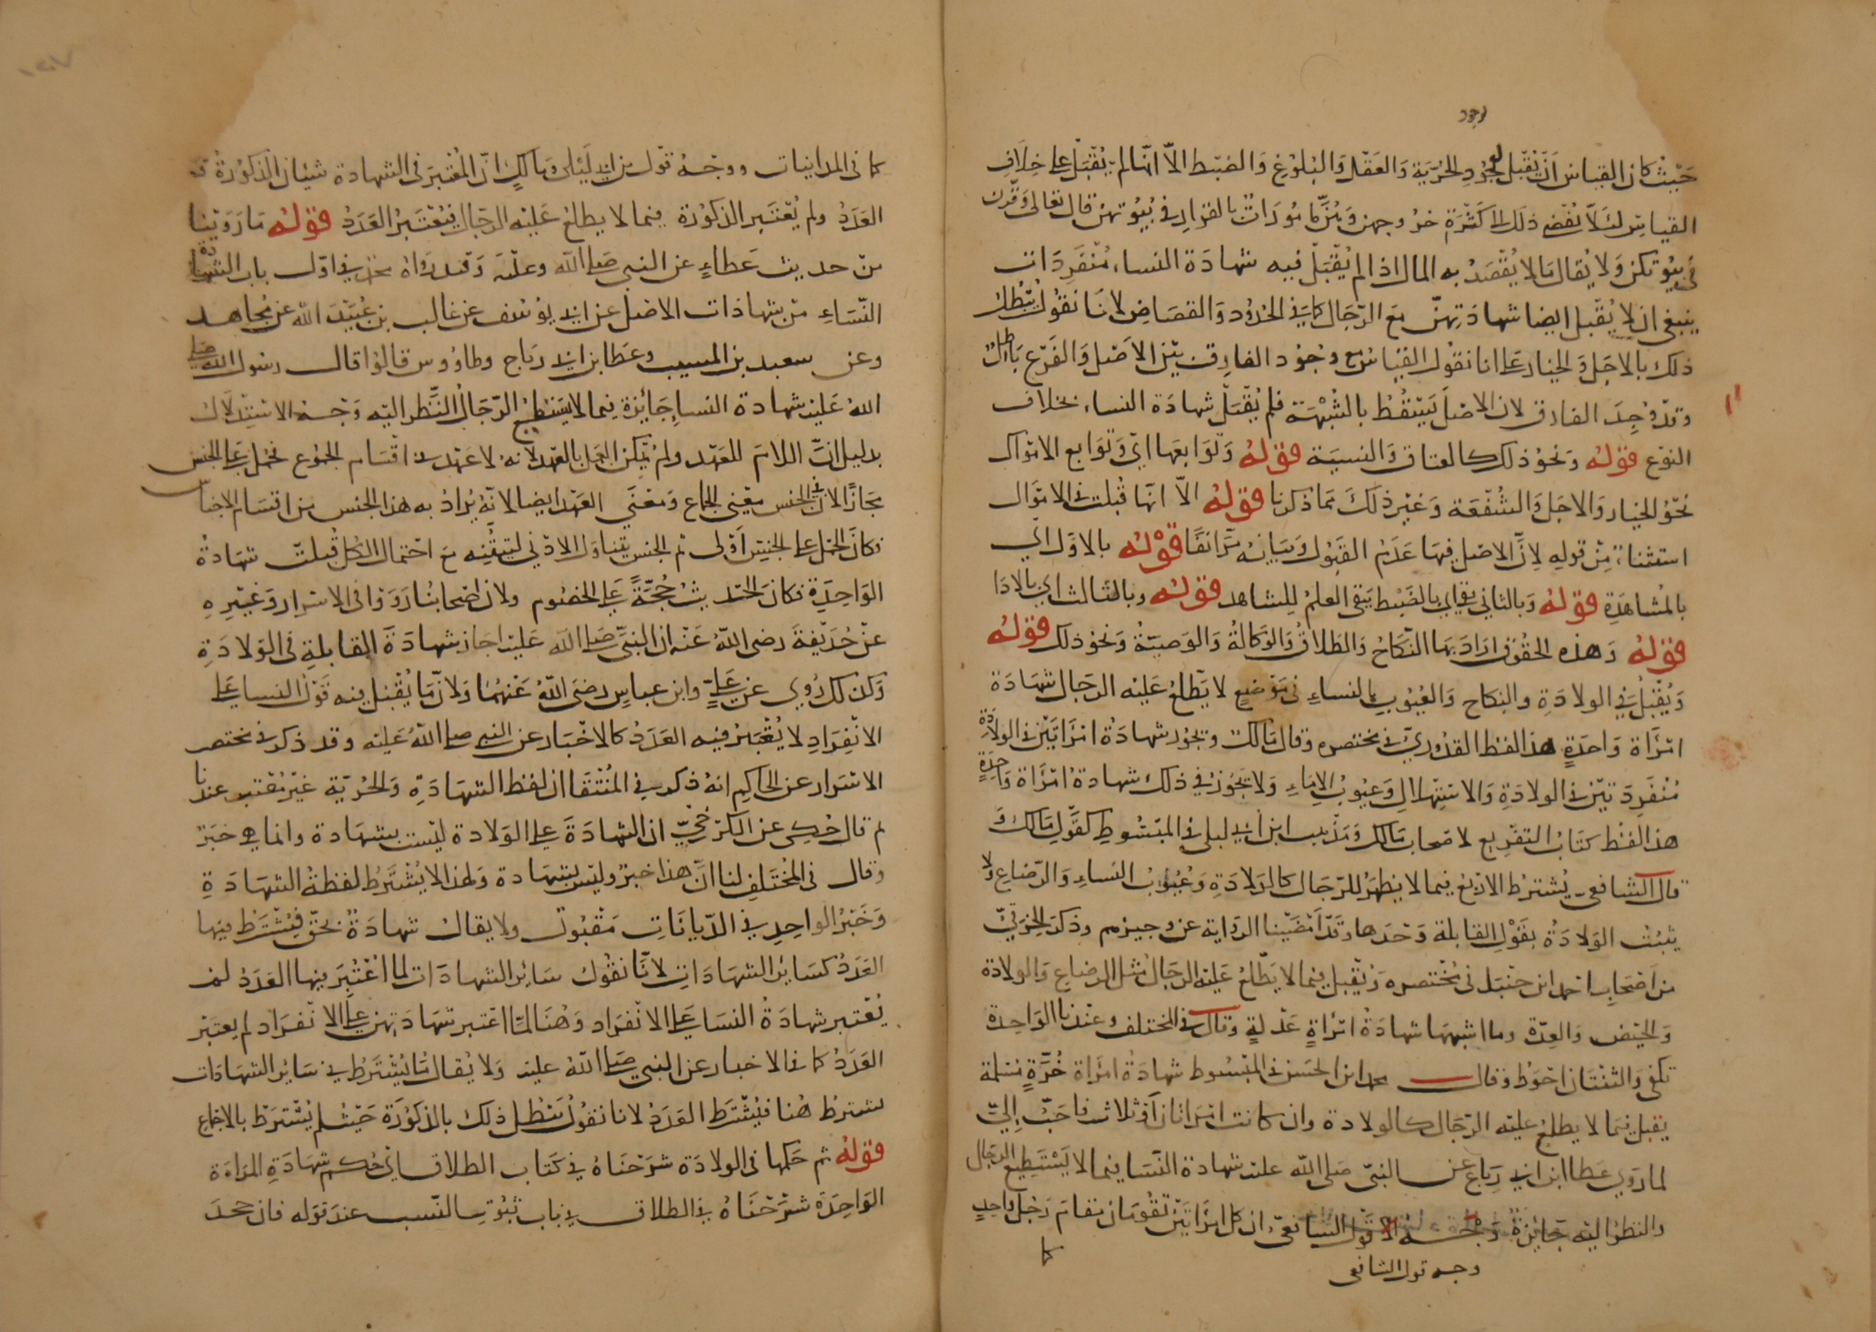 لوجود
حيث كان القياس أن تقبل لوجود الحرية والعقل والبلوغ والضبط الا انها لم تقبل على خلاف
القياس لئلا يفضي ذلك الى كثرة خروجهن وهن مامورات بالقرار في بيوتهن قال تعالى وقرن
في بيوتكن ولا يقال ما لا يقصد به المال اذا لم يقبل فيه شهادة النساء منفردات
ينبغي ان لا يقبل ايضا شهادتهن مع الرجال كما في الحدود والقصاص لانا نقول يبطل
ذلك بالاجل والخيار على انا نقول القياس مع وجود الفارق بين الاصل والفرع باطل
وقد وجد الفارق لان الاصل يسقط بالشبهة فلم يقبل شهادة النساء بخلاف
الفرع قوله ونحو ذلك كالعتاق والنسبة قوله وتوابعها اي وتوابع الاموال
نحو الخيار والاجل والشفعة وغير ذلك مما ذكرنا قوله الا انها قبلت في الاموال
استثناء من قوله لان الاصل فيها عدم القبول وبيانه مر انفا قوله بالاول اي
بالمشاهدة قوله وبالثاني يبقى اي بالضبط يبقى العلم للشاهد قوله وبالثالث اي بالادا
قوله وهذه الحقوق اراد بها النكاح والطلاق والوكالة والوصية ونحو ذلك قوله
ويقبل في الولادة والنكاح والعيوب بالنساء في موضع لا يطلع عليه الرجال شهادة
امراة واحدة هذا لفظ القدوري في مختصره وقال مالك وتجوز شهادة امراتين في الولادة
منفردتين في الولادة والاستهلال وعيوب الاماء ولا تجوز في ذلك شهادة امراة واحدة
هذا لفظ كتاب التفريع لاصحاب مالك ومذهب ابن ابي ليلى في المبسوط كقول مالك و
قال الشافعي يشترط الاربع فيما لا يظهر للرجال كالولادة وعيوب النساء والرضاع ولا
يثبت الولادة بقول القابلة وحدها وقد امضينا الرواية عن وجيزهم وذكر الخرقي
من اصحاب احمد ابن حنبل في مختصره وتقبل فيما لا يطلع عليه الرجال مثل الرضاع والولادة
والحيض والعدة وما اشبهها شهادة امراة عدلة وقال في المختلف وعندنا الواحدة
تكفي والثنتان احوط وقال محمد ابن الحسن في المبسوط شهادة امراة حرة مسلمة
يقبل فيما لا يطلع عليه الرجال كالولادة وان كانت امراتان أو ثلاث فاحب إلي
لما روي عطا ابن ابي رباح عن النبي صلى الله عليه شهادة النسا فيما لا يستطيع الرجال
والنظر اليه جايزة الشافعي ان كل امراتين تقومان مقام رجل واحد
وجه قول الشافعي
كما
كما في المداينات ووجه قول بن ابي ليلى ومالك ان المعتبر في الشهادة شيئان الذكورة و
العدد ولم يعتبر الذكورة فيما لا يطلع عليه الرجال فيعتبر العدد قوله ما روينا
من حديث عطاء عن النبي صلى الله وعليه وقد رواه محمد في اول باب الشهادة
النساء من شهادات الاصل عن ابي يوسف عن غالب بن عبيد الله عن مجاهد
وعن سعيد بن المسيب وعطا بن ابي رباح وطاووس قالوا قال رسول الله صلى
الله عليه شهادة النسا جائزة فيما لا يستطيع الرجال النظر اليه وجه الاستدلال
بدليل ان اللام للعهد ولم يمكن العمل بالعهد لانه لا عهد في اقسام الجموع يحمل على الجنس
مجازا لان في الجنس معنى الجماع ومعنى العهد ايضا لانه يراد به هذا الجنس من اقسام الاجناس
فكان الحمل على الجنس أولى ثم الجنس يتناول الادنى ليتيقنه مع احتمال الكل قبلت شهادة
الواحدة فكان الحديث حجة على الخصوم ولان اصحابنا رووا في الاسرار وغيره
عن حذيفة رضي الله عنه ان النبي صلى الله عليه اجاز شهادة القابلة في الولادة
وكذلك روي عن علي وابن عباس رضي الله عنهما ولان ما يقبل فيه قول النسا على
الانفراد لا يعتبر فيه العدد كالاخبار عن النبي صلى الله عليه وقد ذكر في مختصر
الاسرار عن الحاكم انه ذكر في المنتقا ان لفظ الشهادة والحرية غير معتبر عندنا
ثم قال حكي عن الكرخي ان الشهادة على الولادة ليست بشهادة وانما هي خبر
وقال في المختلف لنا ان هذا خبر وليس بشهادة ولهذا لا يشترط لفظة الشهادة
وخبر الواحد في الديانات مقبول ولا يقال شهادة بحق فيشترط فيها
العدد كسائر الشهادات لانا نقول سائر الشهادات لما اعتبر فيها العدد لم
يعتبر شهادة النسا على الانفراد وهنا لما اعتبر شهادتهن على الانفراد لم يعتبر
العدد كما في الاخبار عن النبي صلى الله عليه ولا يقال ما يشترط في سائر الشهادات
يشترط هنا فيشترط العدد لانا نقول يبطل ذلك بالذكورة حيث لم يشترط بالاجماع
قوله ثم حكمها في الولادة شرحناه في كتاب الطلاق اي حكم شهادة المراءة
الواحدة شرحناه في الطلاق في باب ثبوت النسب عند قوله فان جحد